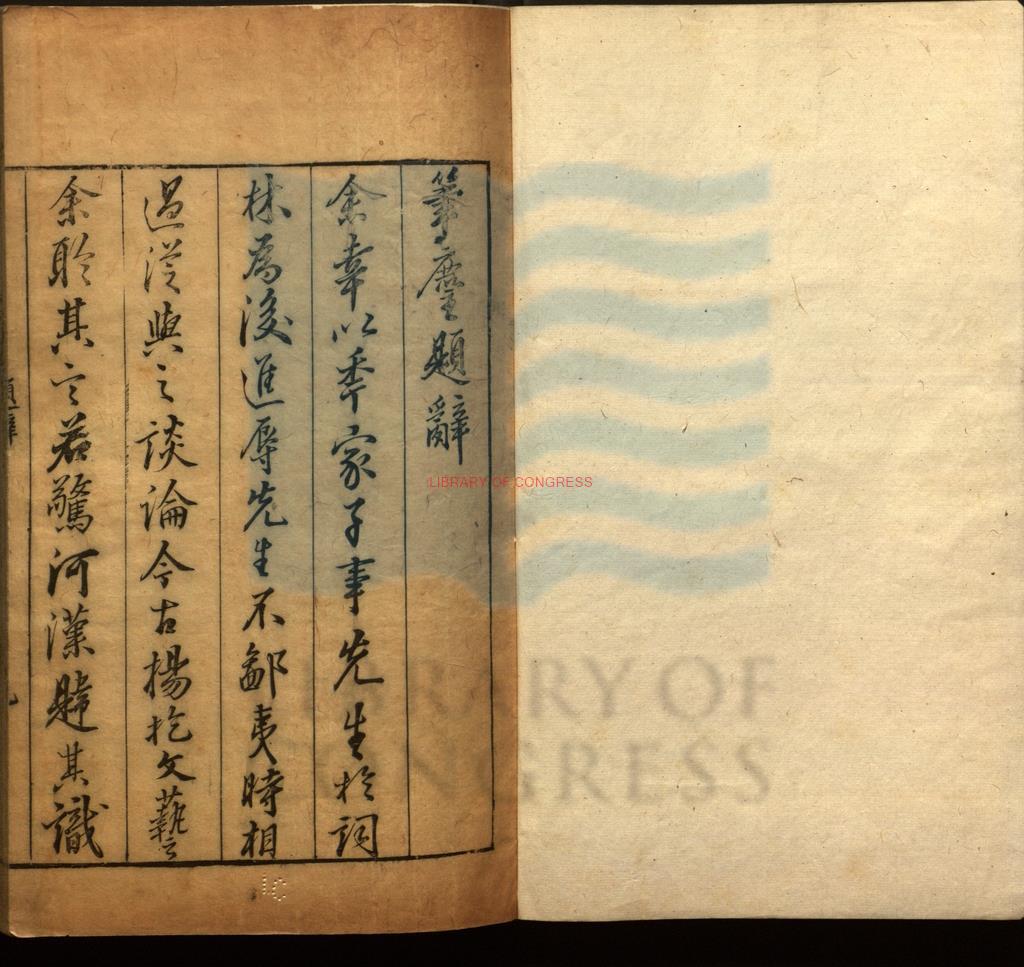 筆麈題辭
余幸以秊家子事先生於詞
林為後進辱先生不鄙夷時相
過從與之談論今古揚扢文藝
余聆其言若驚河漢韙其識
題辭
LIBRARY OF CONGRESS
LIBRARY OF
CONGRESS
LC